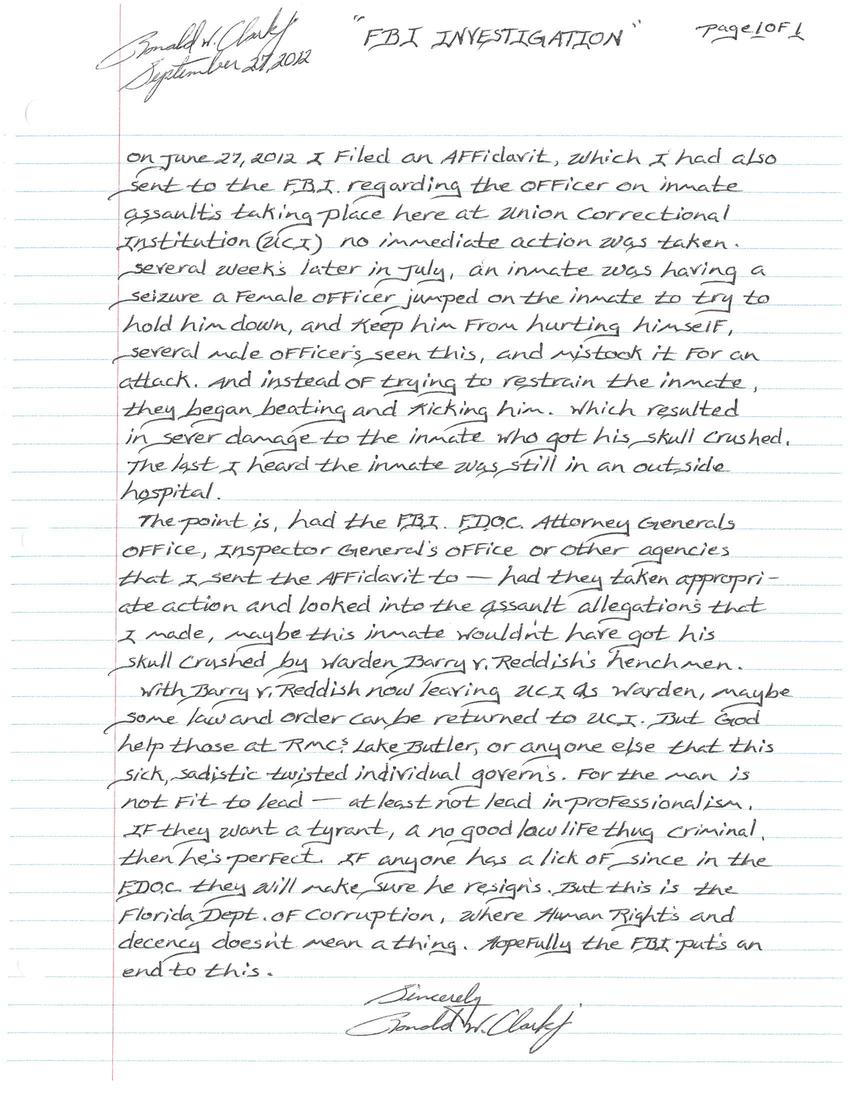 Ronald W. Clark Jr.
"FBI INVESTIGATION"
Page 1 OF 1
September 27, 2012
On June 27, 2012 I Filed an AFFidavit, which I had also
sent to the F.B.I. regarding the OFFicer on inmate
assault's taking place here at Union Correctional
Institution (UCI) no immediate action was taken.
Several week's later in July, an inmate was having a
seizure a Female OFFicer jumped on the inmate to try to
hold him down, and Keep him From hurting himselF,
several male OFFicer's seen this, and mistook it For an
attack. And instead OF trying to restrain the inmate,
they began beating and Kicking him. Which resulted
in sever damage to the inmate who got his skull crushed.
The last I heard the inmate was still in an outside
hospital.
The point is, had the F.B.I. F.D.O.C. Attorney Generals
OFFice, Inspector General's OFFice or other agencies
that I sent the AFFidavit to — had they taken appropri-
ate action and looked into the assault allegation's that
I made, maybe this inmate wouldn't have got his
skull crushed by Warden Barry V. Reddish's henchmen.
With Barry V. Reddish now leaving UCI as Warden, maybe
some law and order can be returned to UCI. But God
help those at RMC's Lake Butler, or anyone else that this
sick, sadistic twisted individual govern's. For the man is
not Fit to lead — at least not lead in proFessionalism.
IF they want a tyrant, a no good low liFe thug criminal,
then he's perFect. IF anyone has a lick oF since in the
F.D.O.C. they will make sure he resign's. But this is the
Florida Dept. oF Corruption, where Human Right's and
decency doesn't mean a thing. HopeFully the FBI put's an
end to this.
Sincerely
Ronald W. Clark Jr.